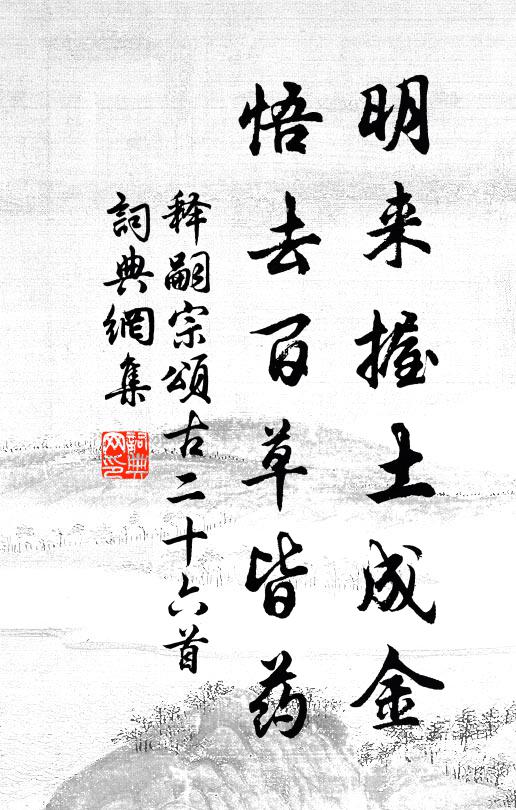 明来握土成金
悟去百草皆药
释嗣宗頌古二十六首
詞典網集
詞典网印